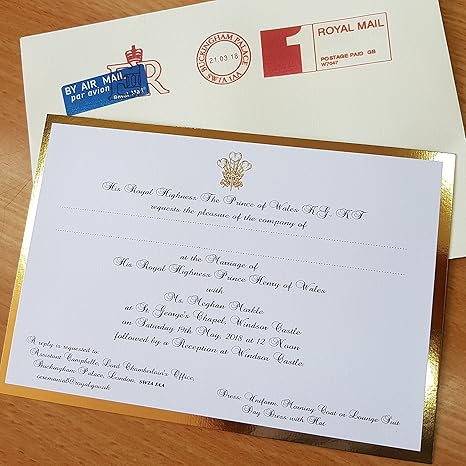 BY AIR MAIL
par avion
Royal Mail
BUCKINGHAM PALACE
21.03.18
SW1A 1AA
1
ROYAL MAIL
POSTAGE PAID GB
W7047
His Royal Highness The Prince of Wales KG, KT
requests the pleasure of the company of
at the Marriage of
His Royal Highness Prince Henry of Wales
with
Ms. Meghan Markle
at St. George's Chapel, Windsor Castle
on Saturday 19th May, 2018 at 12 Noon
followed by a Reception at Windsor Castle
A reply is requested to:
Assistant Comptroller Lord Chamberlain's Office,
Buckingham Palace, London, SW1A 1AA
ceremonial@royal.gov.uk
Dress: Uniform, Morning Coat or Lounge Suit
Day Dress with Hat